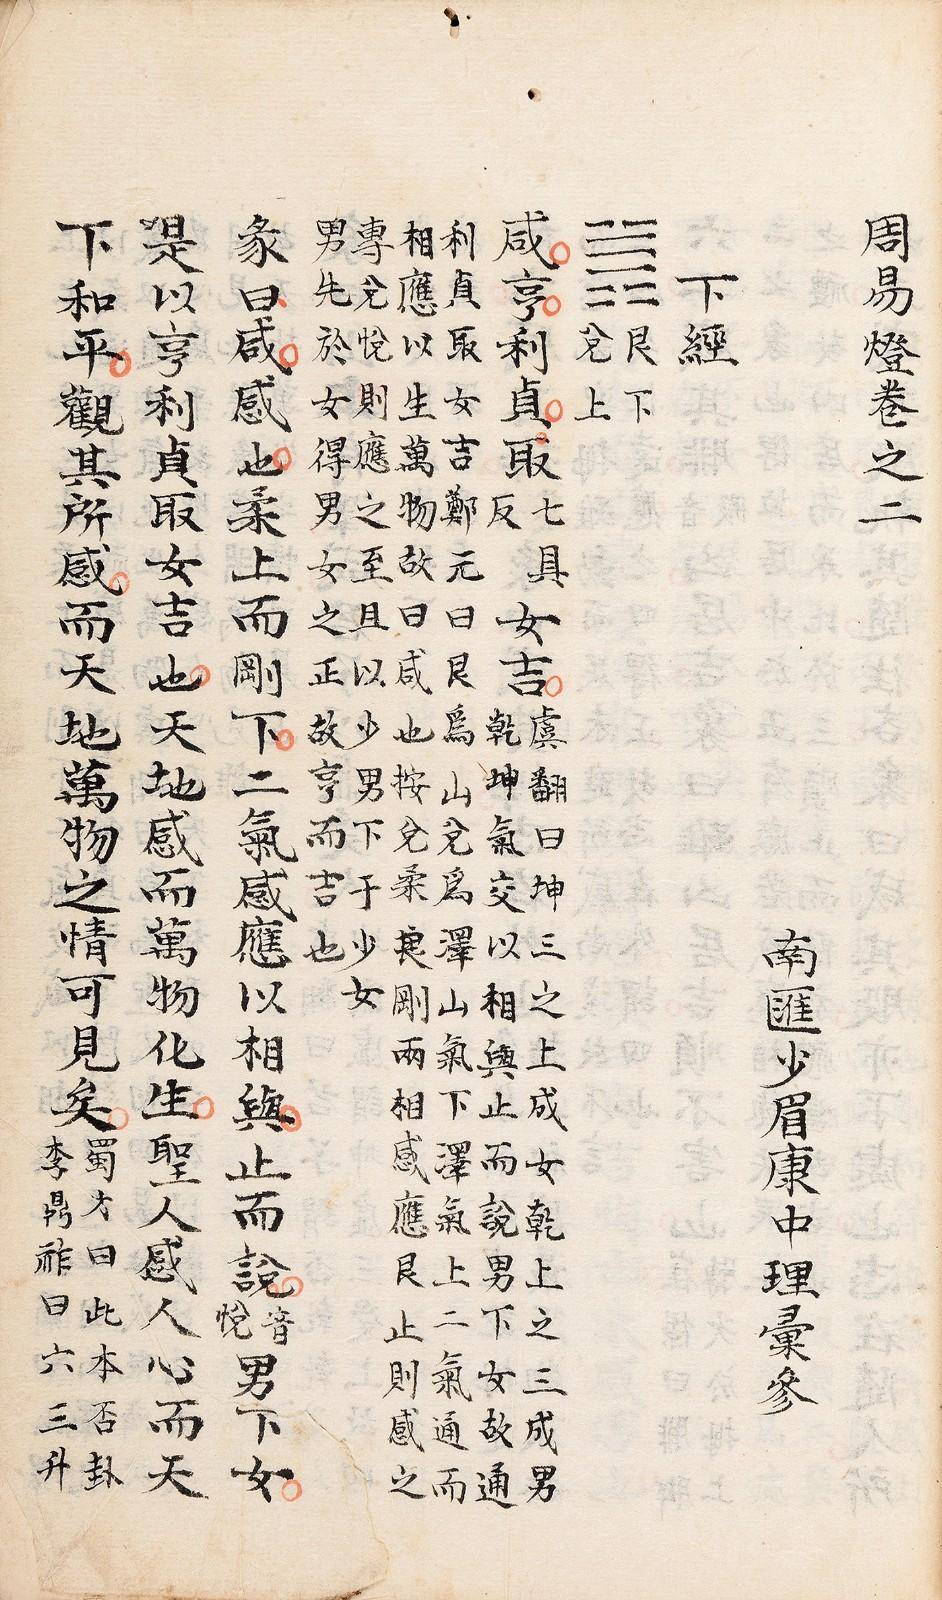 周易燈卷之二
南匯少眉康中理彙參
下經
艮下
兌上
咸亨利貞取
七具
反
女吉
虞翻曰坤三之上成女乾上之三成男
乾坤氣交以相與止而說男下女故通
利貞取女吉鄭元曰艮爲山兌爲澤山氣下澤氣上二氣通而
相應以生萬物故曰咸也按兌柔艮剛兩相感應艮止則感之
專兌悅則應之至且以少男下于少女
男先於女得男女之正故亨而吉也
彖曰咸感也柔上而剛下二氣感應以相與止而說
音
悅
男下女
是以亨利貞取女吉也天地感而萬物化生聖人感人心而天
下和平觀其所感而天地萬物之情可見矣
蜀才曰此本否卦
李鼎祚曰六三升